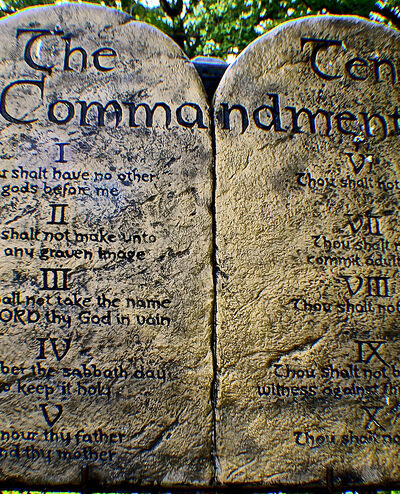 The Ten
Commandment
I
shalt have no other
gods before me
II
shalt not make unto
any graven image
III
not take the name
LORD thy God in vain
IV
the sabbath day
keep it holy
V
thy father
thy mother
VI
Thou shalt not
VII
Thou shalt
commit
VIII
Thou shalt not
IX
Thou shalt not
witness against
X
Thou shalt